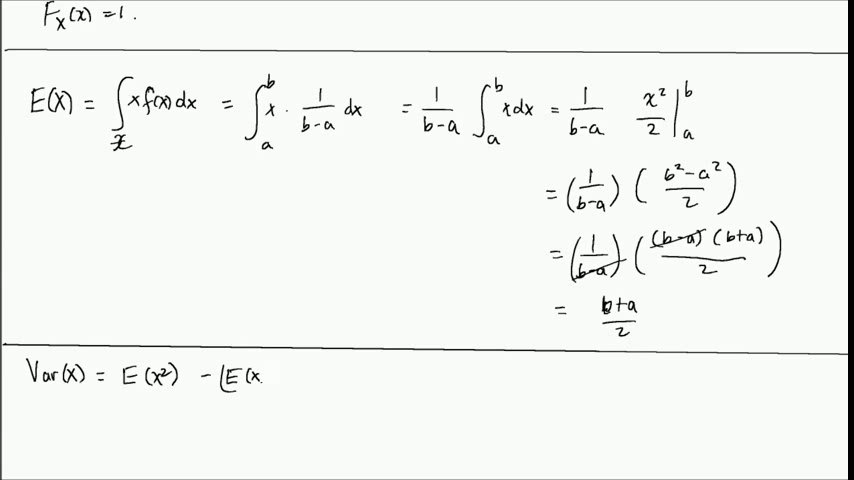 F_X(x) = 1.
E(X) = ∫_𝒳 x f(x) dx = ∫_a^b x · 1/(b-a) dx = 1/(b-a) ∫_a^b x dx = 1/(b-a) x²/2 |_a^b
= (1/(b-a)) ((b²-a²)/2)
= (1/(b-a)) ((b-a)(b+a)/2)
= (b+a)/2
Var(X) = E(x²) - [E(x